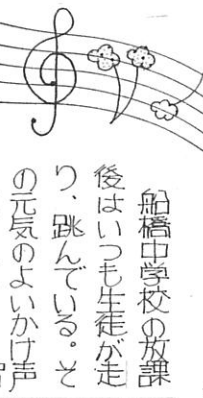 船橋中学校の放課
後はいつも生徒が走
り、跳んでいる。そ
の元気のよいかけ声